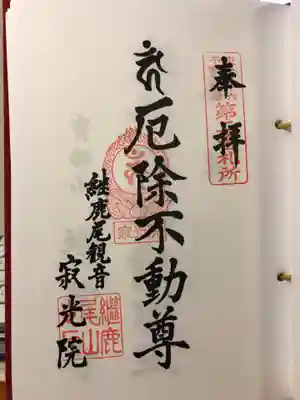 奉拝
第
札所
厄除不動尊
継鹿尾観音
寂光院
継鹿
尾山